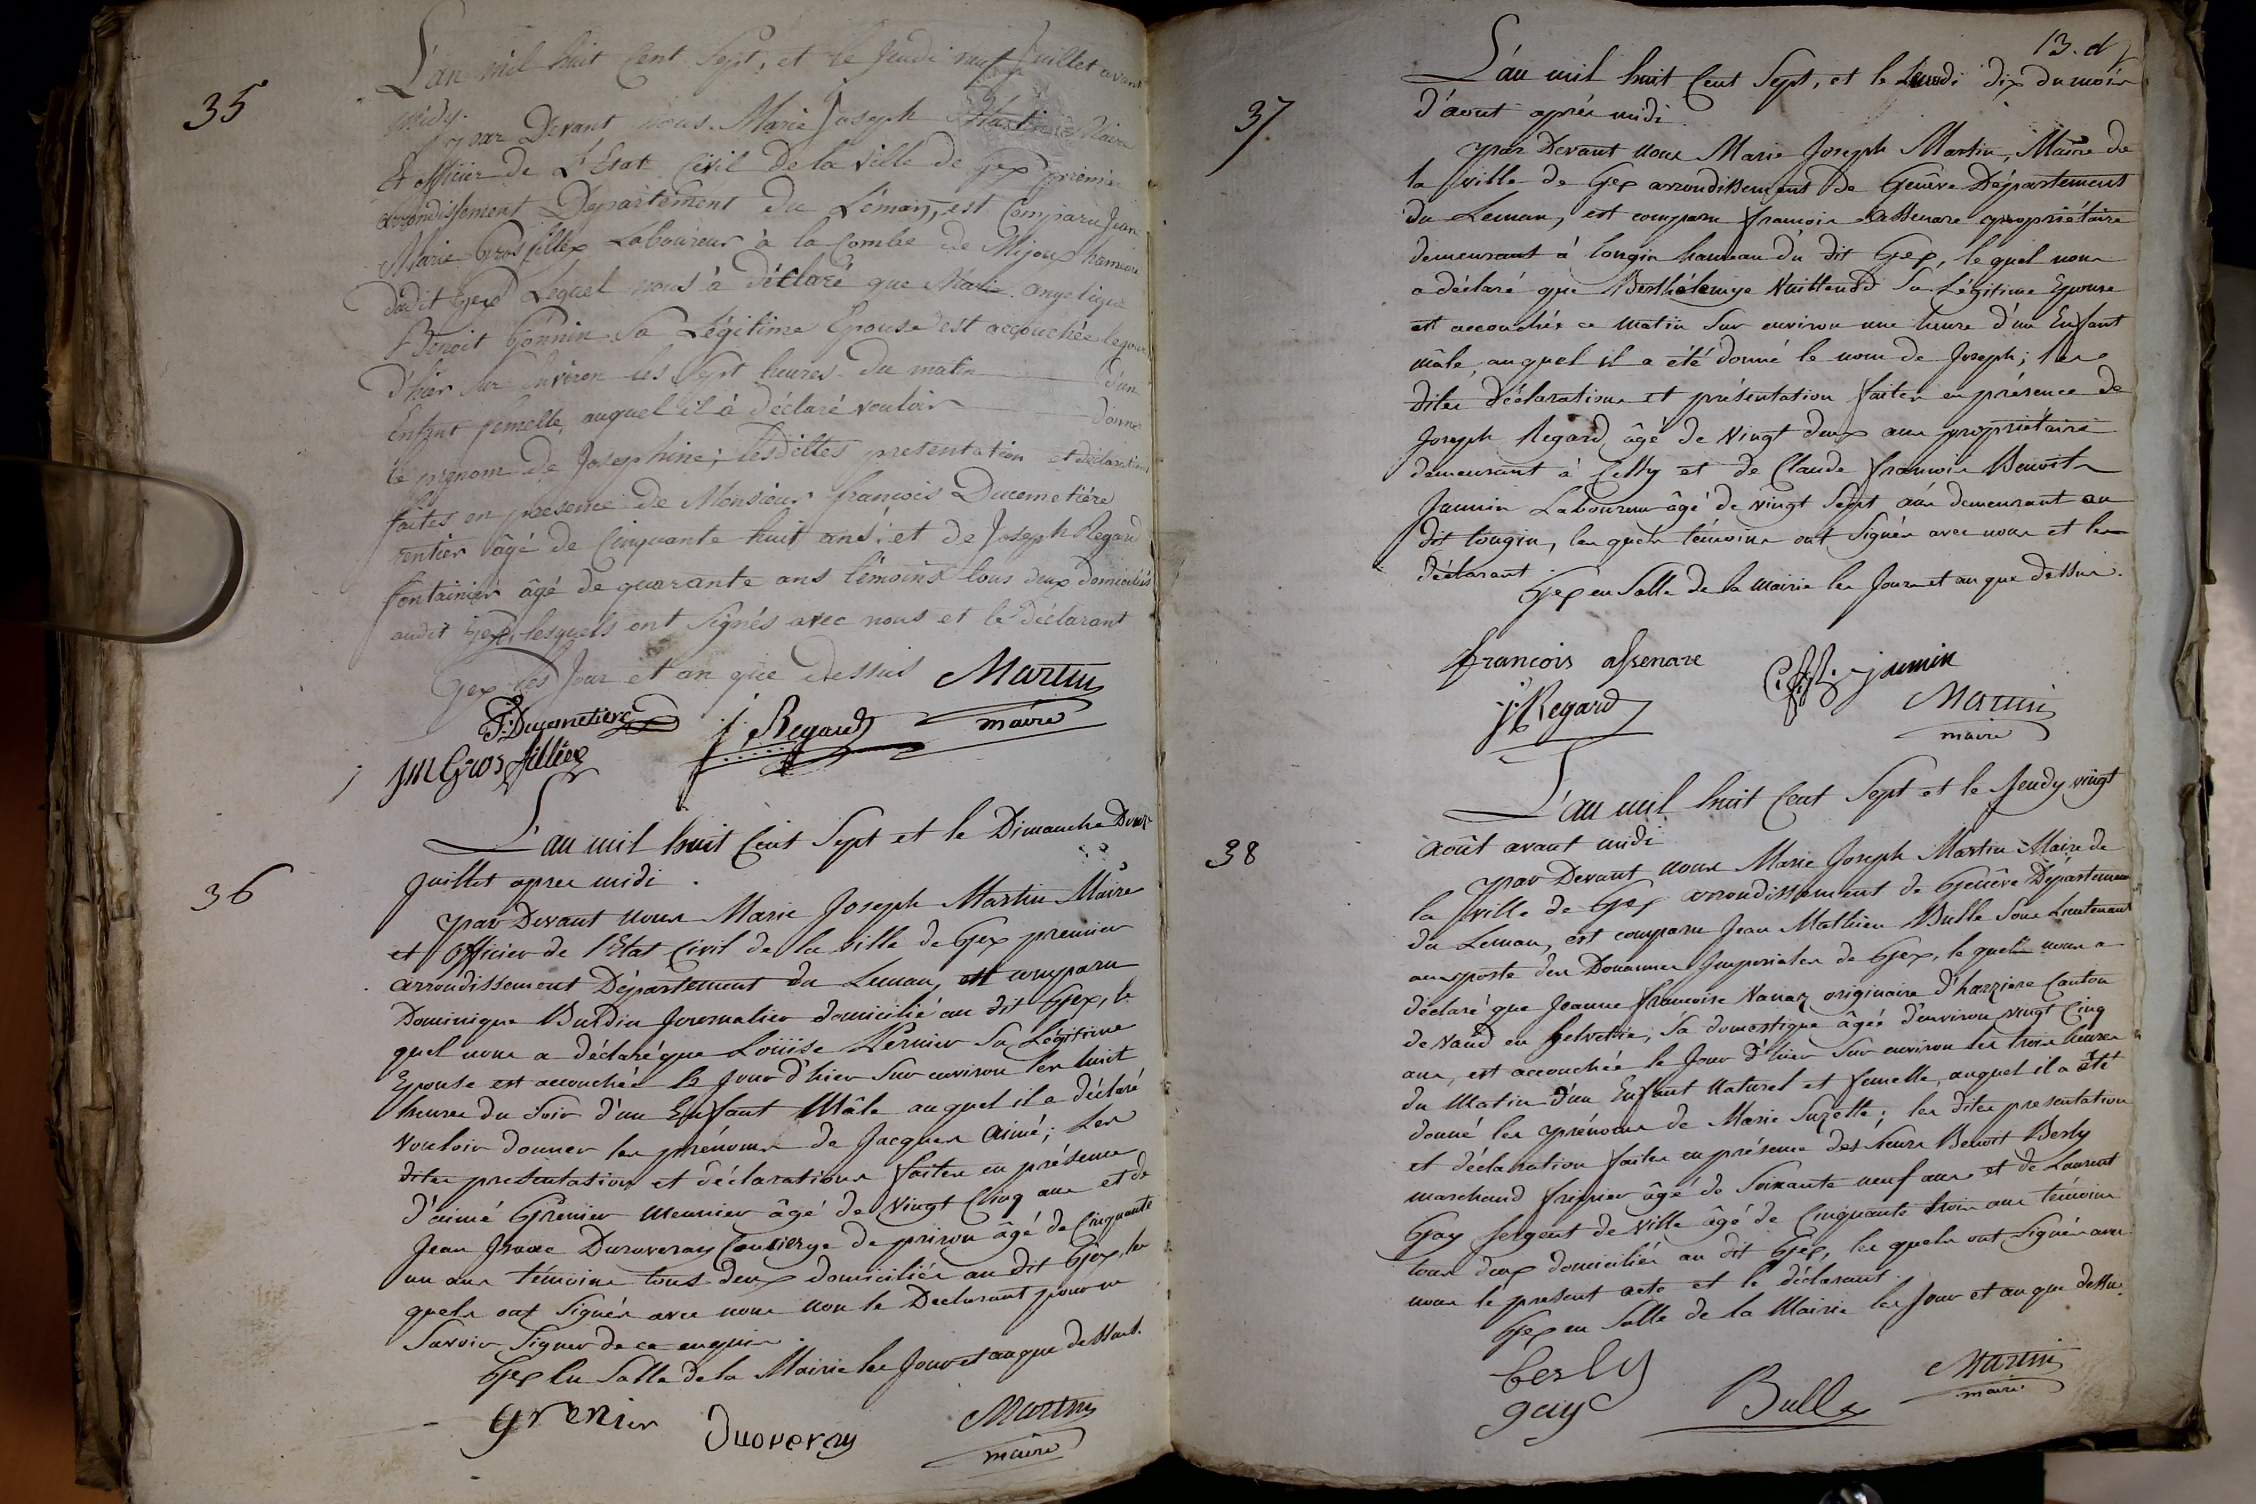 35
L'an mil huit Cent Sept, et le Jeudi neuf Juillet avant
midy.
par Devant nous Marie Joseph Martin Maire
Et officier de L'Etat Civil de la Ville de Gex premier
arrondissement Departement du Léman, est Comparu Jean
Marie Gros fillex Laboureur à la Combe de Mijoux hameau
dudit Gex Lequel nous à déclaré que Marie angelique
Benoit Gonnin Sa Légitime Epouse est accouchée le jour
d'hier sur environ les Sept heures du matin d'un
Enfant femelle, auquel il à déclaré vouloir donner
le prenom de Josephine; lesdittes presentation et déclarations
faites en presence de Monsieur françois Ducemetiére
rentier âgé de Cinquante huit ans; et de Joseph Regard
fontainier âgé de quarante ans témoins tous deux domiciliés
audit Gex, lesquels ont Signés avec nous et le déclarant
Gex les Jour et an que dessus Martin
F: Ducemetiere J. Regard maire
JM Gros fillex
36
L'an mil huit Cent Sept et le Dimanche Douze
Juillet apres midi.
par Devant nous Marie Joseph Martin Maire
et officier de l'Etat Civil de la ville de Gex premier
arrondissement Département du Leman, est comparu
Dominique Burdin Journalier domicilié au dit Gex, le
quel nous a déclaré que Loüise Pernier Sa Légitime
Epouse est accouchée le Jour d'hier Sur environ les huit
heures du Soir d'un Enfant Mâle auquel il a déclaré
vouloir donner les prénoms de Jacques Aimé; Les
dites presentation et déclarations faites en présence
d'aimé Grenier meunier âgé de Vingt Cinq ans et de
Jean Isaac Duroveray Concierge de prison âgé de Cinquante
un ans témoins tous deux domiciliés au dit Gex, les
quels ont Signés avec nous non le Declarant pour ne
Savoir Signer de ce enquis.
Gex En Salle de la Mairie les Jour et an que dessus.
grenier Duoveray Martin
maire
13. d
37
L'an mil huit Cent Sept, et le Lundi dix du mois
d'aout après midi.
par Devant nous Marie Joseph Martin, Maire de
la ville de Gex arrondissement de Genève Département
du Leman, est comparu françois assenare propriétaire
demeurant à tougin hameau du dit Gex, le quel nous
a déclaré que Berthélemye Vuillend Sa Légitime Epouse
est accouchée ce matin Sur environ une heure d'un Enfant
mâle, auquel il a été donné le nom de Joseph; les
dites déclaration et présentation faites en présence de
Joseph Regard âgé de Vingt deux ans propriétaire
demeurant à Cessy et de Claude françois Benoit
Jannin Laboureur âgé de vingt Sept ans demeurant au
dit tougin, les quels témoins ont Signés avec nous et le
déclarant.
Gex en Salle de la Mairie les Jour et an que dessus.
francois assenare jannin
J. Regard Martin
maire
38
L'an mil huit Cent Sept et le Jeudy vingt
août avant midi
par Devant nous Marie Joseph Martin Maire de
la ville de Gex arrondissement de Genêve Département
du Leman, est comparu Jean Mathieu Bulle Sous Lieutenant
au poste des Douanes Imperiales de Gex, le quel nous a
déclaré que Jeanne françoise Vanaz originaire d'harziere Canton
de Vaud en helvetie, Sa domestique âgée d'environ vingt Cinq
ans, est accouchée le Jour d'hier Sur environ les trois heures
du Matin d'un Enfant Naturel et femelle, auquel il a été
donné les prénoms de Marie Suzette; les dites presentation
et déclaration faites en présence des sieurs Benoit Berly
marchand fripier âgé de Soixante neuf ans et de Laurent
Gay Sergent de ville âgé de Cinquante trois ans témoins
tous deux domiciliés au dit Gex, les quels ont Signés avec
nous le present acte et le déclarant.
Gex en Salle de la Mairie les Jour et an que dessus.
berly Martin
gay Bulle maire